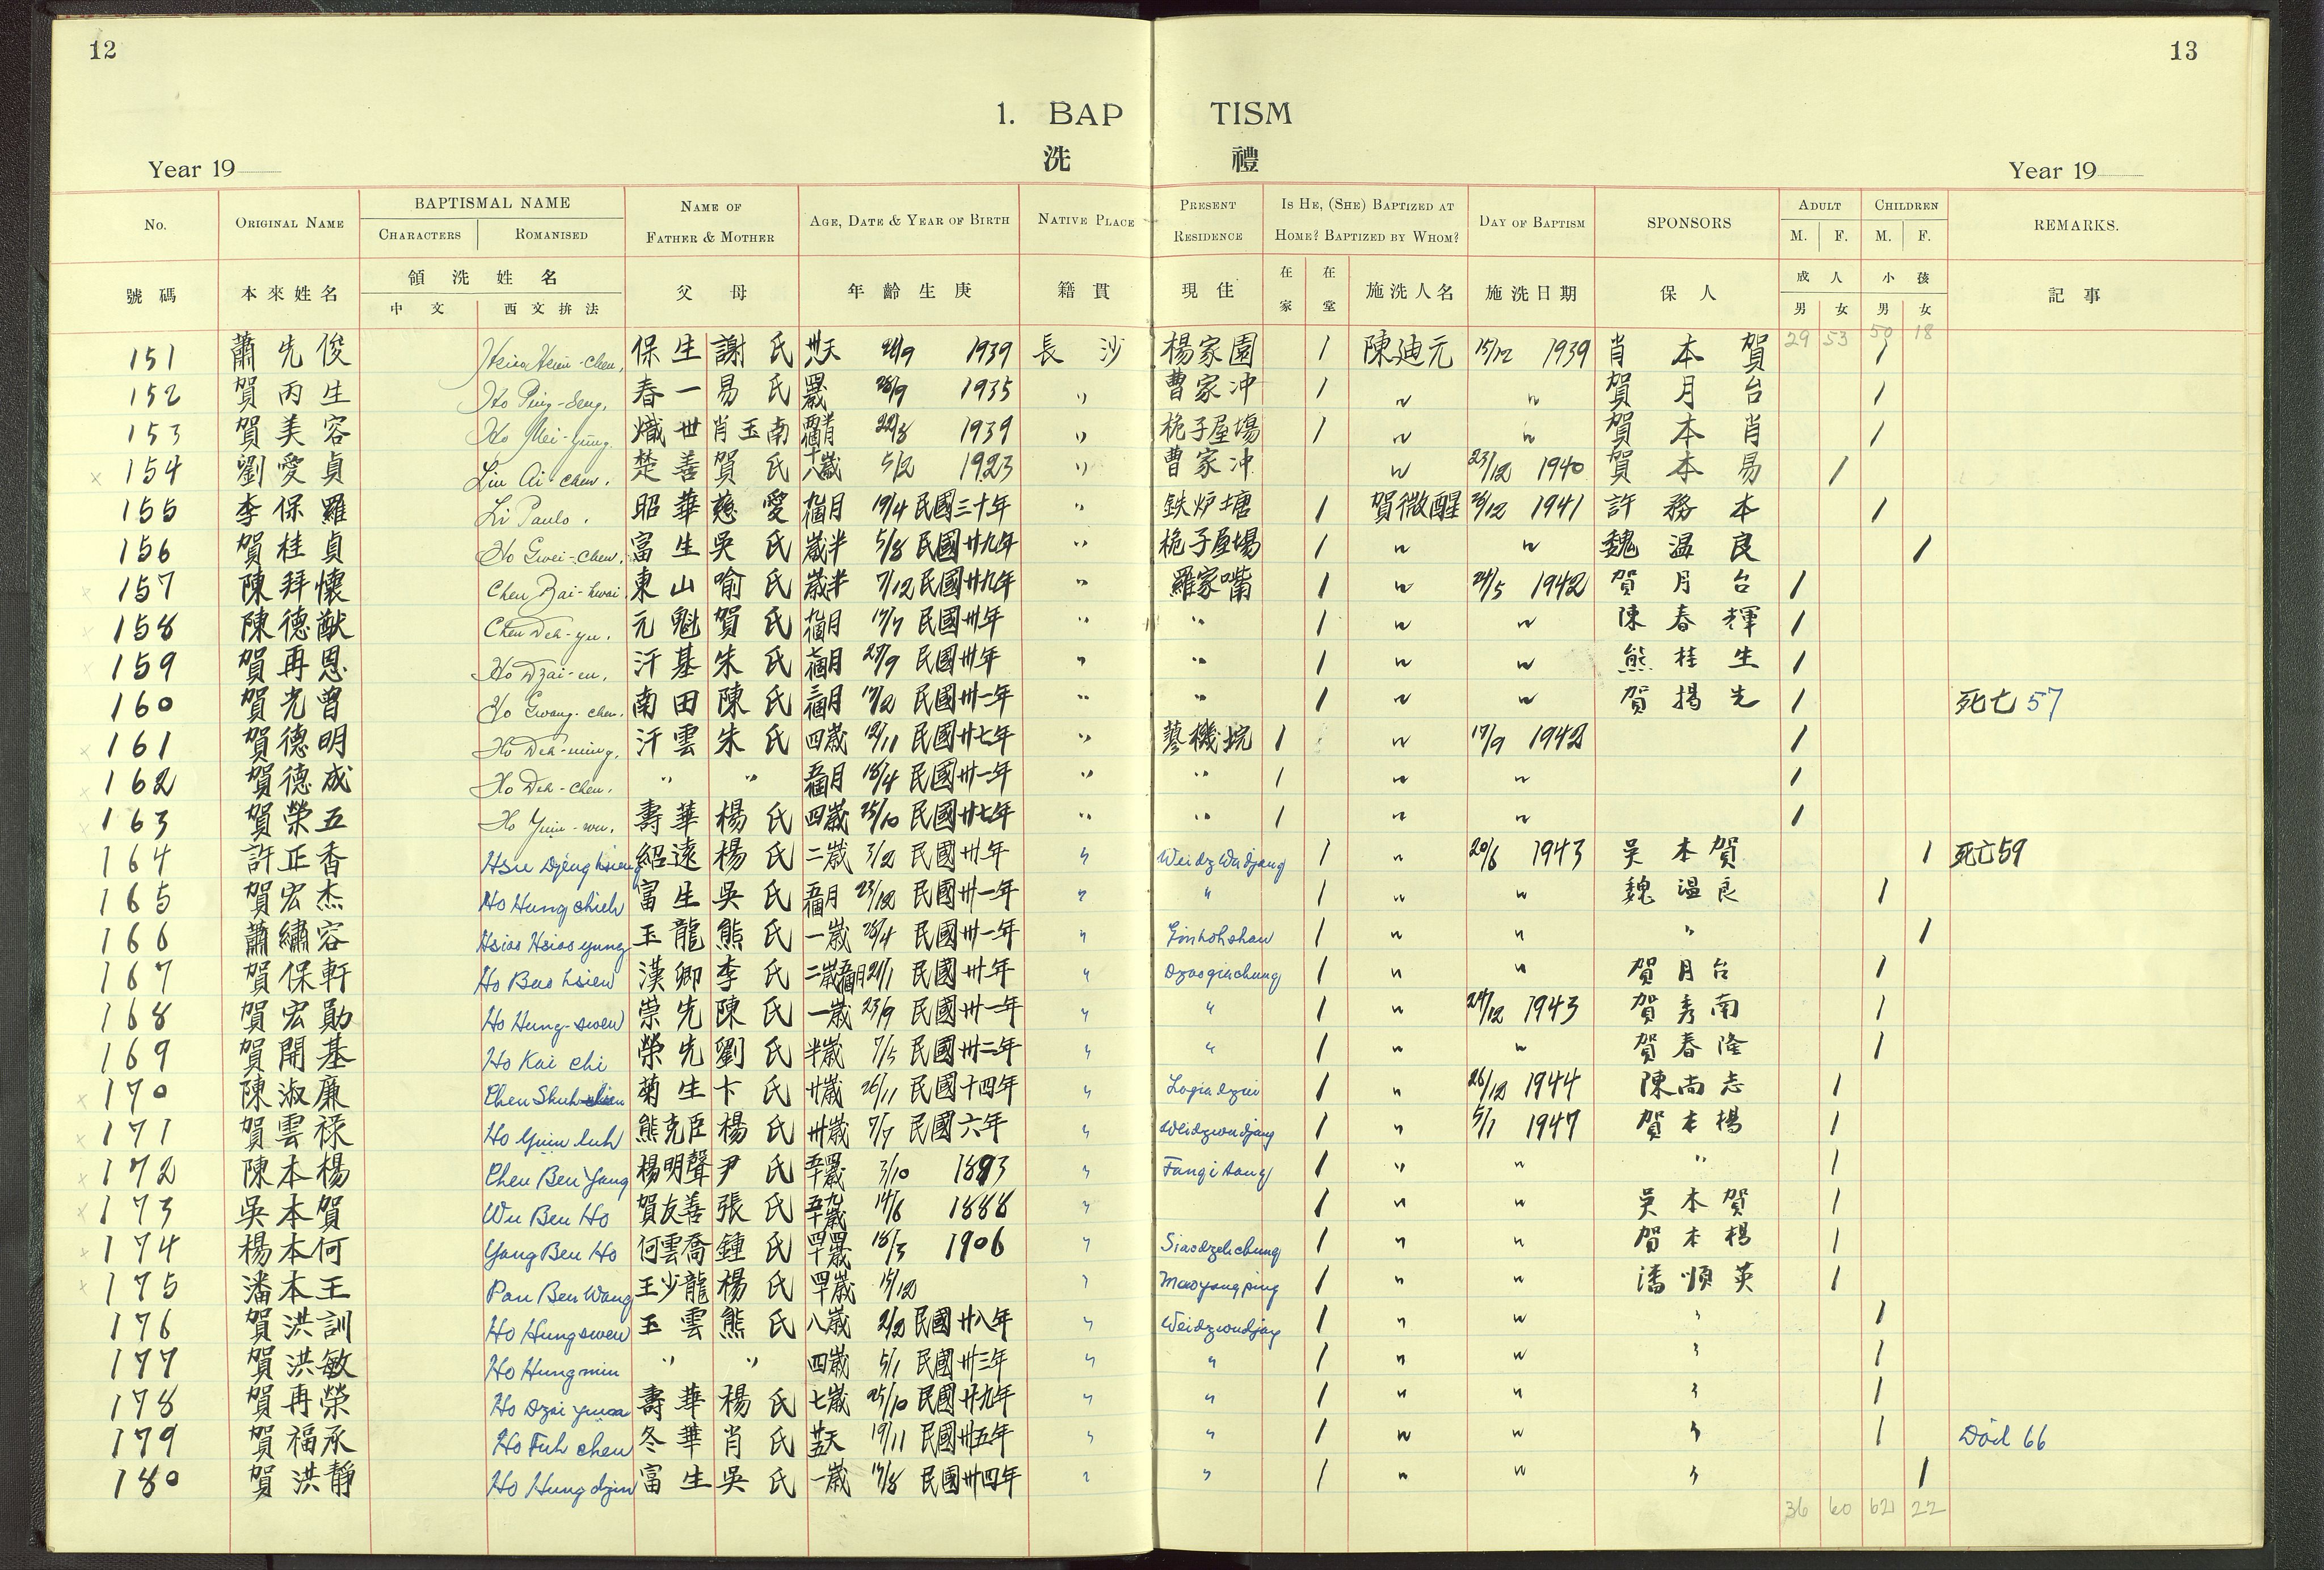 12
13
1. BAP TISM
洗 禮
Year 19
Year 19
No. ORIGINAL NAME BAPTISMAL NAME NAME OF FATHER & MOTHER AGE, DATE & YEAR OF BIRTH NATIVE PLACE PRESENT RESIDENCE IS HE, (SHE) BAPTIZED AT HOME? BAPTIZED BY WHOM? DAY OF BAPTISM SPONSORS ADULT CHILDREN REMARKS.
CHARACTERS ROMANISED M. F. M. F.
號碼 本來姓名 領洗姓名 父 母 年齡生庚 籍貫 現住 在家 在堂 施洗人名 施洗日期 保人 成人 小孩 記事
中文 西文拚法 男 女 男 女
29 53 50 18
151 蕭先俊 保生 謝氏 1939 長沙 楊家園 1 陳迪元 15/12 1939 肖本賀 1
152 賀丙生 Ho Ping-Seng. 春一 易氏 28/9 1935 〃 曹家冲 1 〃 〃 賀月台 1
153 賀美容 Ho Mei-yüng. 熾世 肖玉南 1939 〃 桅子屋塲 1 〃 〃 賀本肖 1
154 劉愛貞 Liu Ai-chen. 楚善 賀氏 十八歲 5/12 1923 〃 曹家冲 〃 23/12 1940 賀本易 1
155 李保羅 Li Paulo. 昭華 慈愛 九個月 19/4 民國三十年 〃 鉄炉塘 1 賀微醒 25/12 1941 許務本 1
156 賀桂貞 Ho Gwei-Chen. 富生 吳氏 歲半 5/8 民國廿九年 〃 桅子屋塲 1 〃 〃 魏温良 1
157 陳拜懷 Chen Bai-hwai 東山 喻氏 歲半 7/12 民國廿九年 〃 羅家嘴 1 〃 24/5 1942 賀月台 1
158 陳德猷 Chen Deh-yu. 元魁 賀氏 九個月 17/7 民國卅年 〃 〃 1 〃 〃 陳春輝 1
159 賀再恩 Ho Dzai-en. 汗基 朱氏 七個月 27/9 民國卅年 〃 〃 1 〃 〃 熊桂生 1
160 賀光曾 南田 陳氏 三個月 17/2 民國卅一年 〃 〃 1 〃 〃 賀揚先 1 死亡 57
161 賀德明 Ho Deh-ming. 汗雲 朱氏 四歲 12/11 民國廿七年 〃 1 〃 17/9 1942 1
162 賀德成 Ho Deh-chen. 〃 〃 五個月 18/4 民國卅一年 〃 〃 1 〃 〃 1
163 賀榮五 壽華 楊氏 四歲 25/10 民國廿七年 〃 〃 1 〃 〃 1
164 許正香 紹遠 楊氏 二歲 3/2 民國卅年 〃 1 〃 20/6 1943 吳本賀 1 死亡 59
165 賀宏杰 Ho Hung chieh 富生 吳氏 五個月 23/12 民國卅一年 〃 〃 1 〃 〃 魏温良 1
166 蕭繡容 Hsiao Hsiao yung 玉龍 熊氏 一歲 28/4 民國卅一年 〃 1 〃 〃 〃 1
167 賀保軒 Ho Bao hsien 漢卿 李氏 民國卅年 〃 1 〃 〃 賀月台 1
168 賀宏勛 Ho Hung-swen 崇先 陳氏 一歲 23/9 民國卅一年 〃 〃 1 〃 24/12 1943 賀秀南 1
169 賀開基 Ho Kai chi 榮先 劉氏 半歲 7/5 民國卅二年 〃 〃 1 〃 〃 賀春隆 1
170 陳淑廉 Chen Shuh 菊生 卞氏 廿歲 26/11 民國十四年 〃 1 〃 26/12 1944 陳尚志 1
171 賀雲祿 Ho Yuin luh 熊克臣 楊氏 卅歲 7/7 民國六年 〃 Weidzwudjang 1 〃 5/1 1947 賀本楊 1
172 陳本楊 Chen Ben Yang 楊明聲 尹氏 五十四歲 3/10 1893 〃 Fangitang 1 〃 〃 〃 1
173 吳本賀 Wu Ben Ho 賀友善 張氏 五十九歲 14/6 1888 〃 1 〃 〃 吳本賀 1
174 楊本何 Yang Ben Ho 何雲喬 鍾氏 1906 〃 Siaodzehchung 1 〃 〃 賀本楊 1
175 潘本王 Pan Ben Wang 王少龍 楊氏 四十歲 15/12 〃 Maoyangping 1 〃 〃 潘順英 1
176 賀洪訓 Ho Hung swen 玉雲 熊氏 八歲 2/2 民國廿八年 〃 1 〃 〃 〃 1
177 賀洪敏 Ho Hung min 〃 〃 四歲 5/1 民國卅三年 〃 〃 1 〃 〃 〃 1
178 賀再榮 壽華 楊氏 七歲 25/10 民國廿九年 〃 〃 1 〃 〃 〃 1
179 賀福承 Ho Fuh chen 冬華 肖氏 19/11 民國卅五年 〃 〃 1 〃 〃 〃 1 Död 66
180 賀洪靜 Ho Hung djin 富生 吳氏 一歲 17/8 民國卅四年 〃 〃 1 〃 〃 〃 1
36 60 62 22